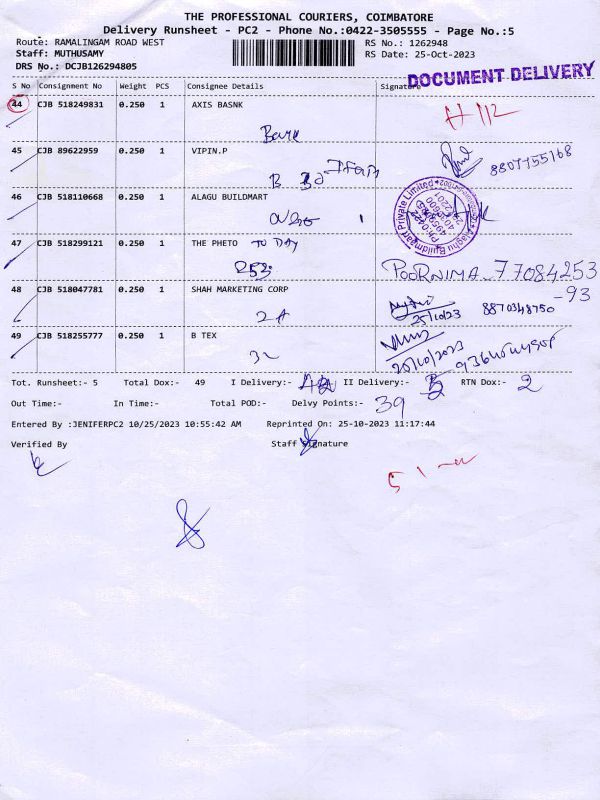 THE PROFESSIONAL COURIERS, COIMBATORE
Delivery Runsheet - PC2 - Phone No.:0422-3505555 - Page No.:5
Route: RAMALINGAM ROAD WEST
RS No.: 1262948
Staff: MUTHUSAMY
RS Date: 25-Oct-2023
DRS No.: DCJB126294805
DOCUMENT DELIVERY
S No Consignment No Weight PCS Consignee Details Signature
44 CJB 518249831 0.250 1 AXIS BASNK
45 CJB 89622959 0.250 1 VIPIN.P
8807755168
46 CJB 518110668 0.250 1 ALAGU BUILDMART
47 CJB 518299121 0.250 1 THE PHETO TO DAY
253
POORNIMA - 77084253
-93
48 CJB 518047781 0.250 1 SHAH MARKETING CORP
25/10/23 8870348750
49 CJB 518255777 0.250 1 B TEX
25/10/2023
Tot. Runsheet:- 5 Total Dox:- 49 I Delivery:- II Delivery:- 5 RTN Dox:- 2
Out Time:- In Time:- Total POD:- Delvy Points:- 39
Entered By :JENIFERPC2 10/25/2023 10:55:42 AM Reprinted On: 25-10-2023 11:17:44
Verified By Staff Signature